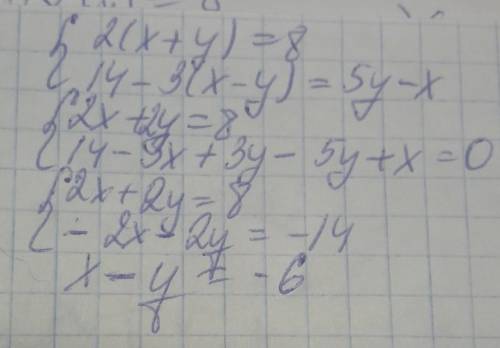 { 2(x+y) = 8
{ 14-3(x-y) = 5y-x
{ 2x+2y = 8
{ 14-3x+3y-5y+x = 0
{ 2x+2y = 8
{ -2x-2y = -14
x-y = -6